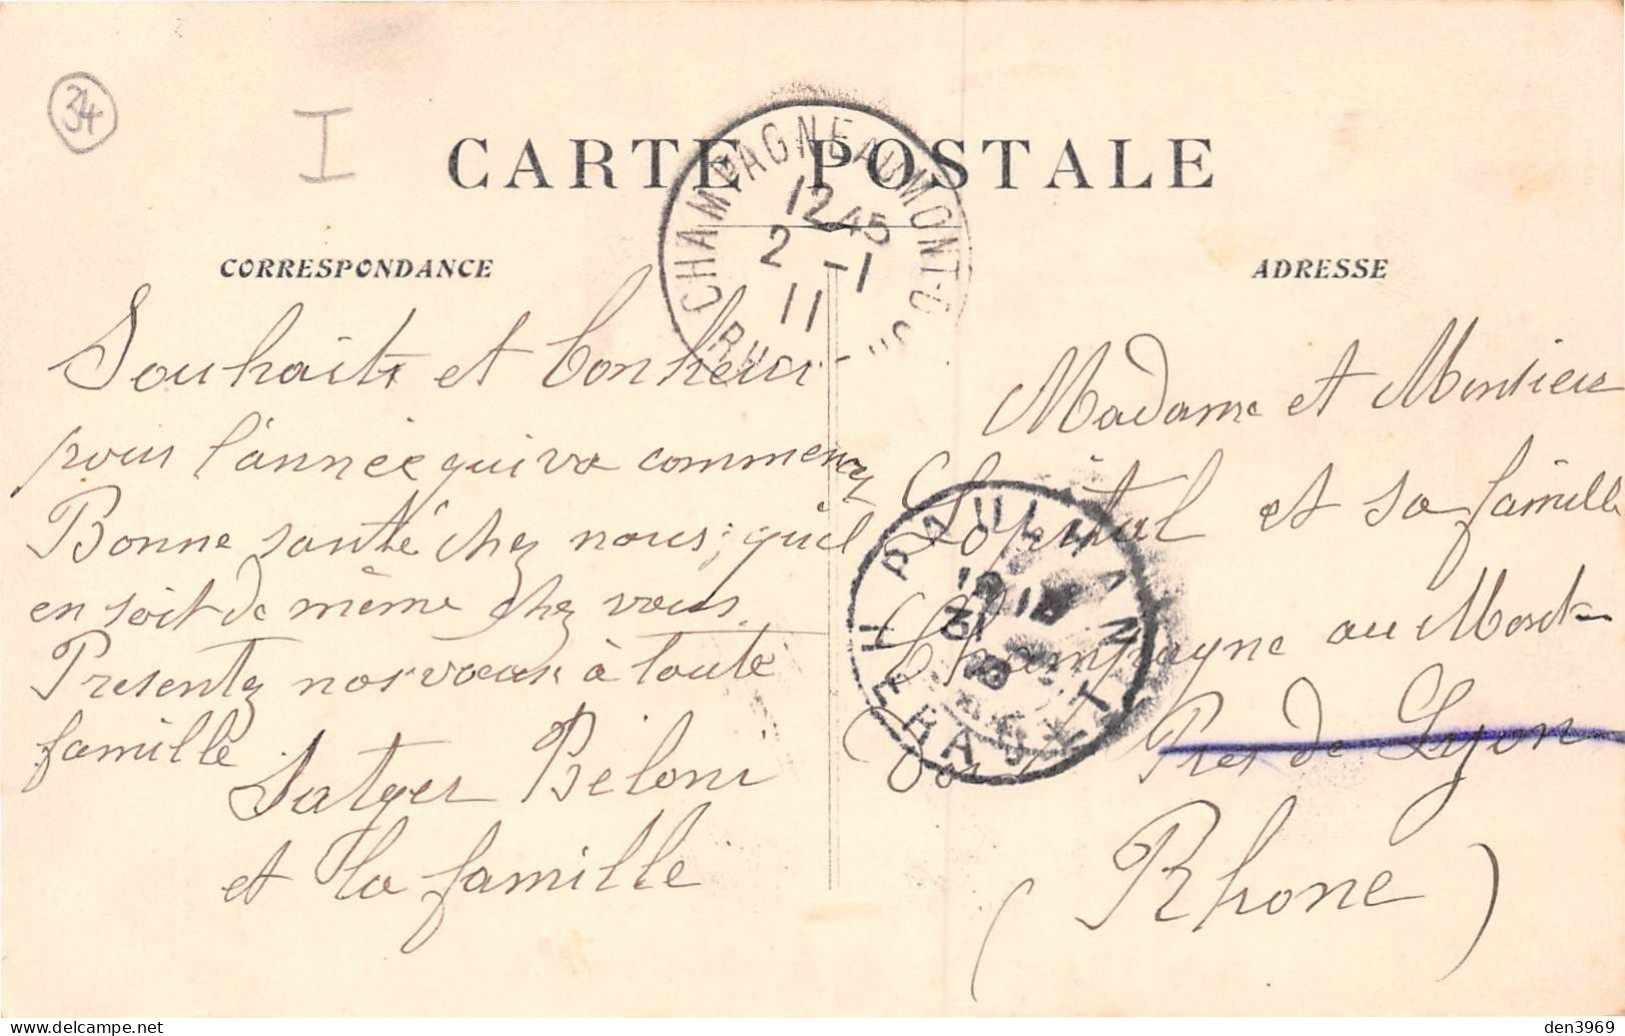 34
I
CARTE POSTALE
CHAMPAGNE AU MONT-D'OR
12 45
2 -1
11
RHONE
CORRESPONDANCE
Souhaits et bonheur
pour l'année qui va commencer
Bonne santé chez nous; qu'il
en soit de même chez vous.
Presentez nos voeux à toute
famille
Satger Beloni
et la famille
ADRESSE
Madame et Monsieur
Lopital et sa famille
Champagne au Mond
d'or Pres de Lyon
(Rhone)
PAULHAN
31
HERAULT
den3969